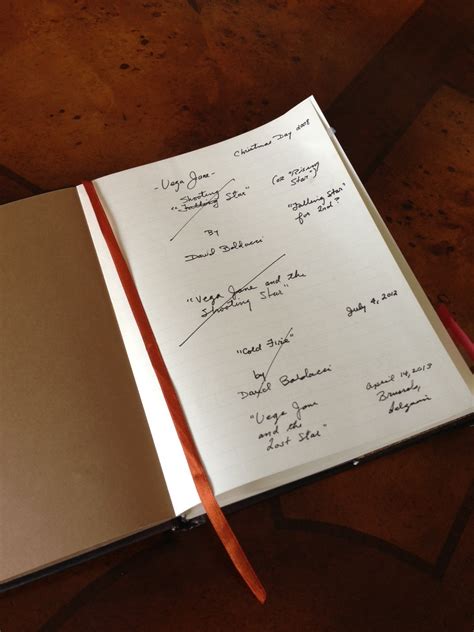 Christmas Day 2008
- Vega Jane -
Shooting
"Falling Star"
(or "Rising
Star")
"Falling Star"
for 2nd?
By
David Baldacci
"Vega Jane and the
Shooting Star"
July 4, 2012
"Cold Fire"
by
David Baldacci
April 14, 2013
Brussels,
Belgium
"Vega Jane
and the
Lost Star"